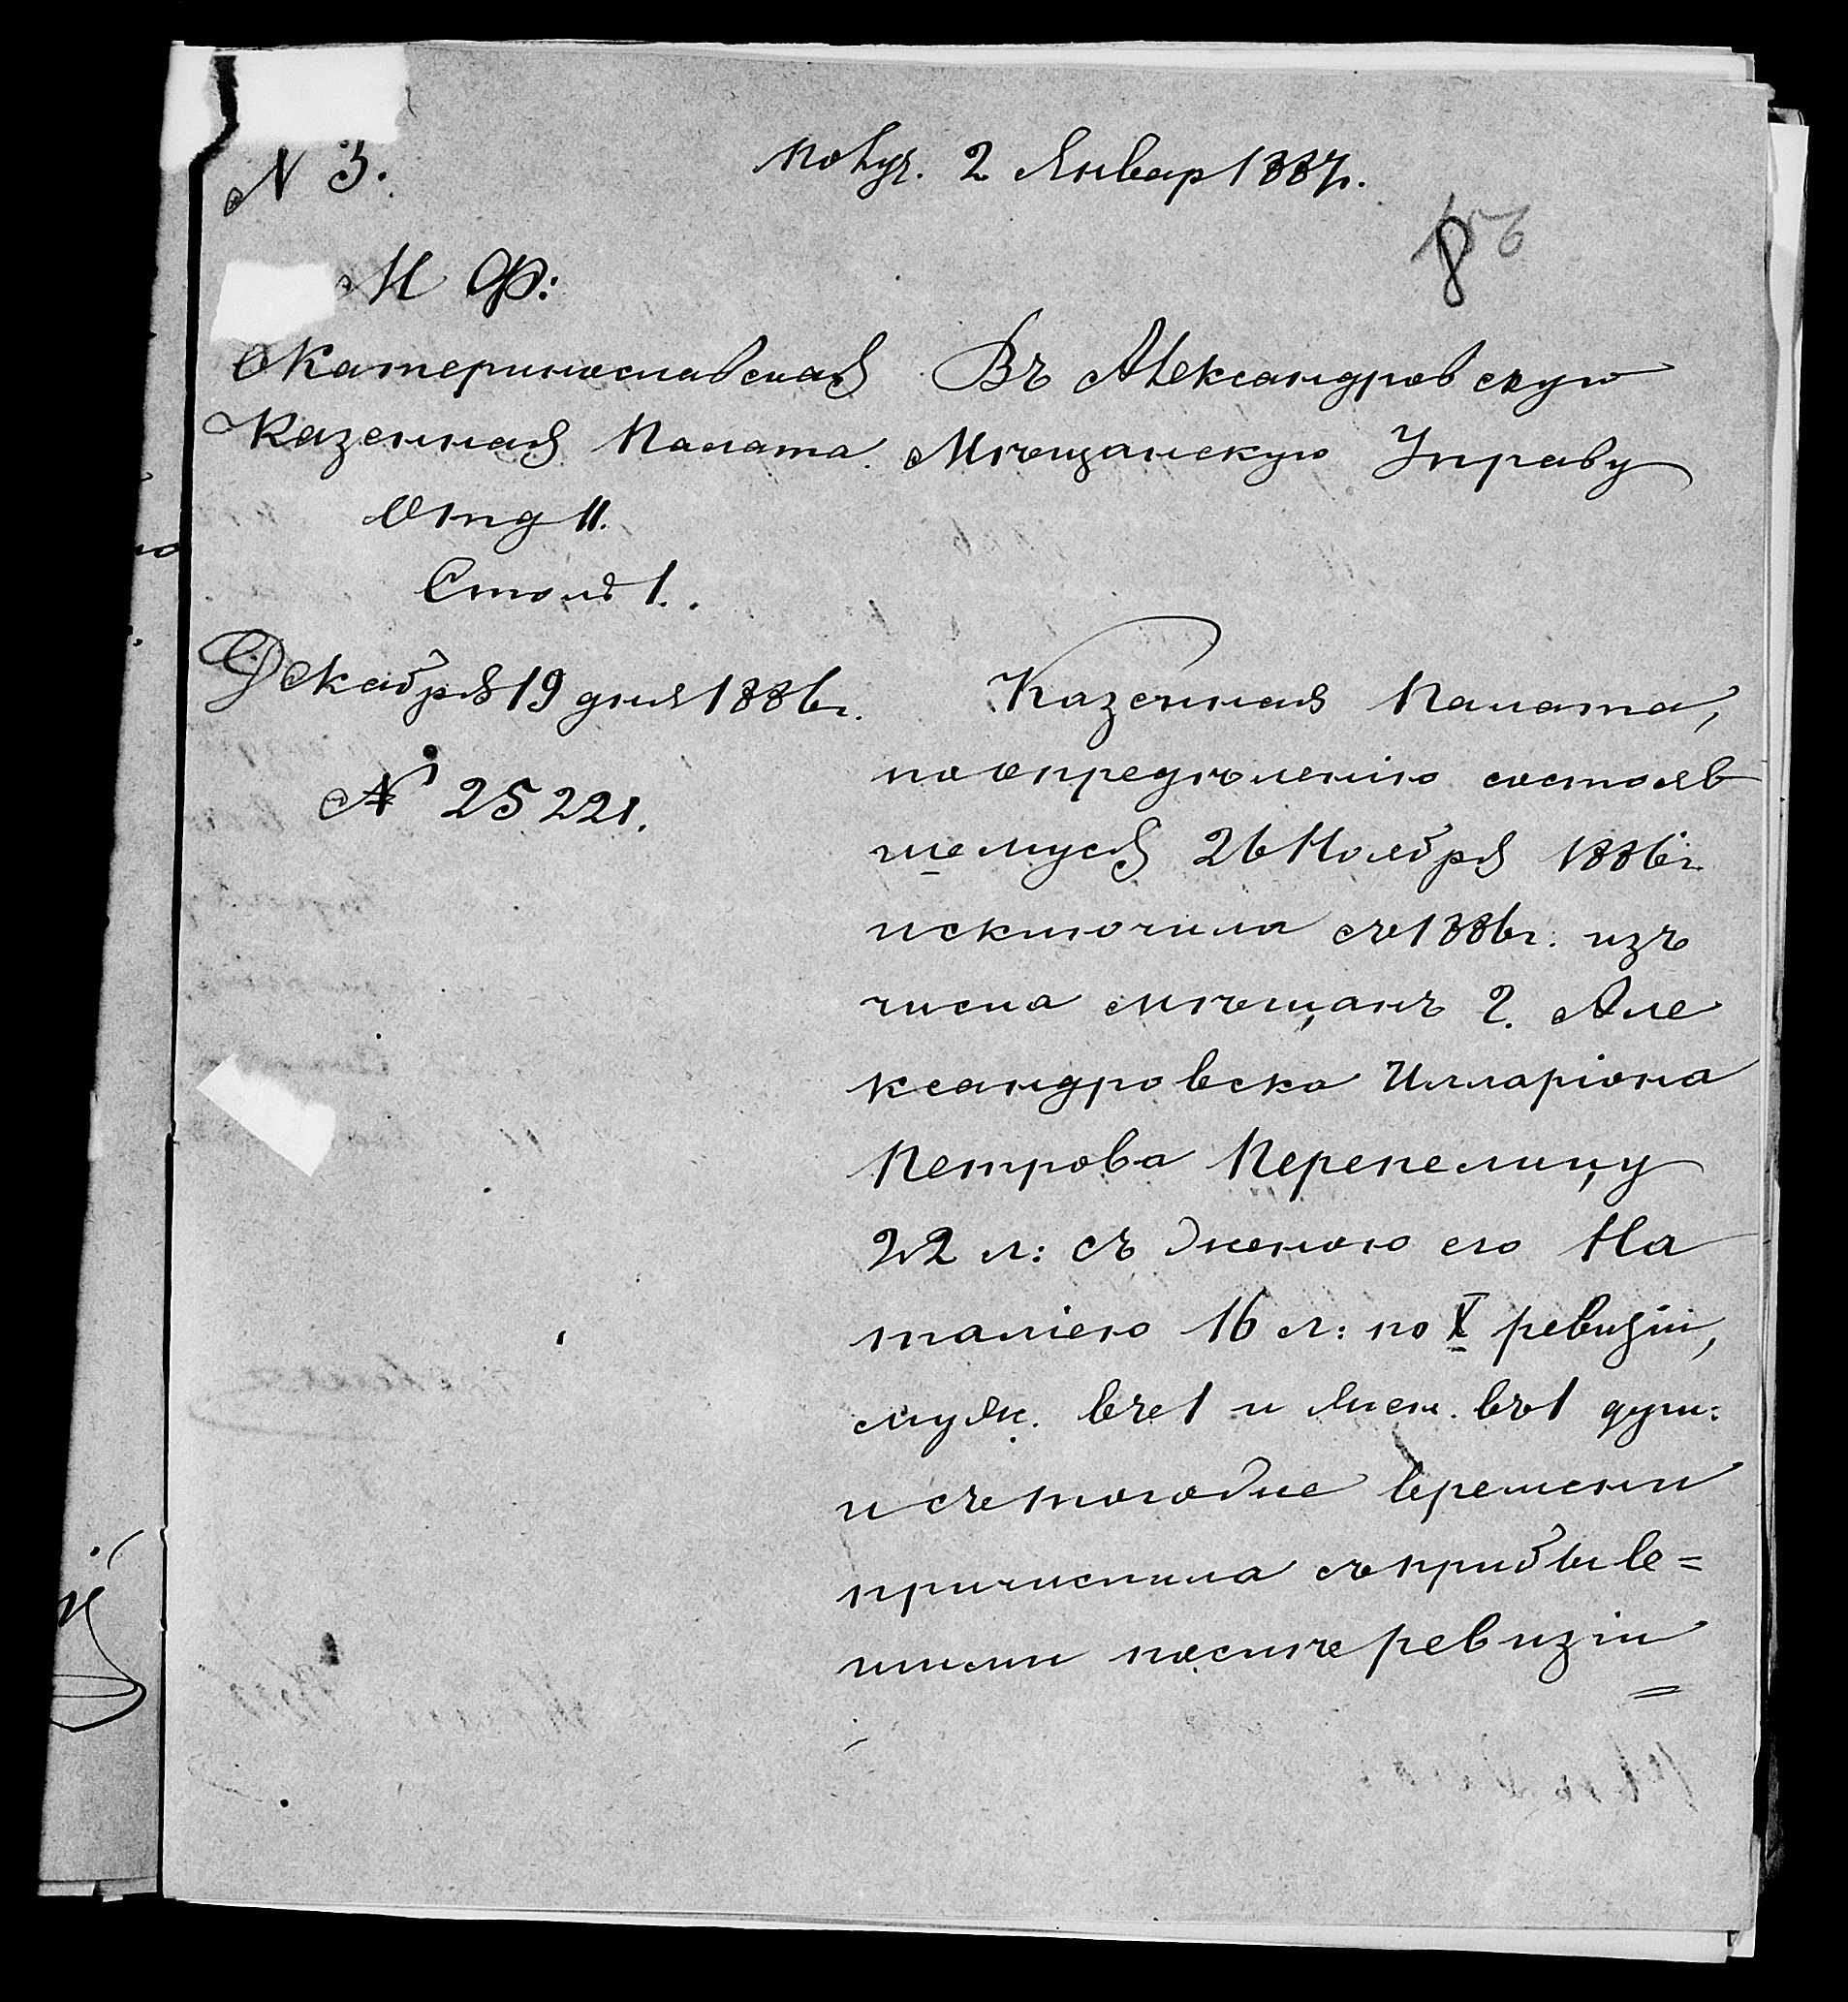 N 3.
Получ. 2 Январ 1887г.
8
М Ф:
Екатеринославская
Казенная Палата.
Отд II.
Столъ 1.
Декабря 19 дня 1886г.
№ 25221.
Въ Александровскую
Мѣщанскую Управу
Казенная Палата,
по опредѣленію состояв
шемуся 26 Ноября 1886г.
исключила съ 1886г. изъ
числа мѣщанъ г. Але
ксандровска Илларіона
Петрова Перепелицу
22 л: съ женою его На
таліею 16 л: по X ревизіи,
муж. въ 1 и жен. въ 1 душ:
и съ того же времени
причислила съ прибыв=
шими послѣ ревизіи